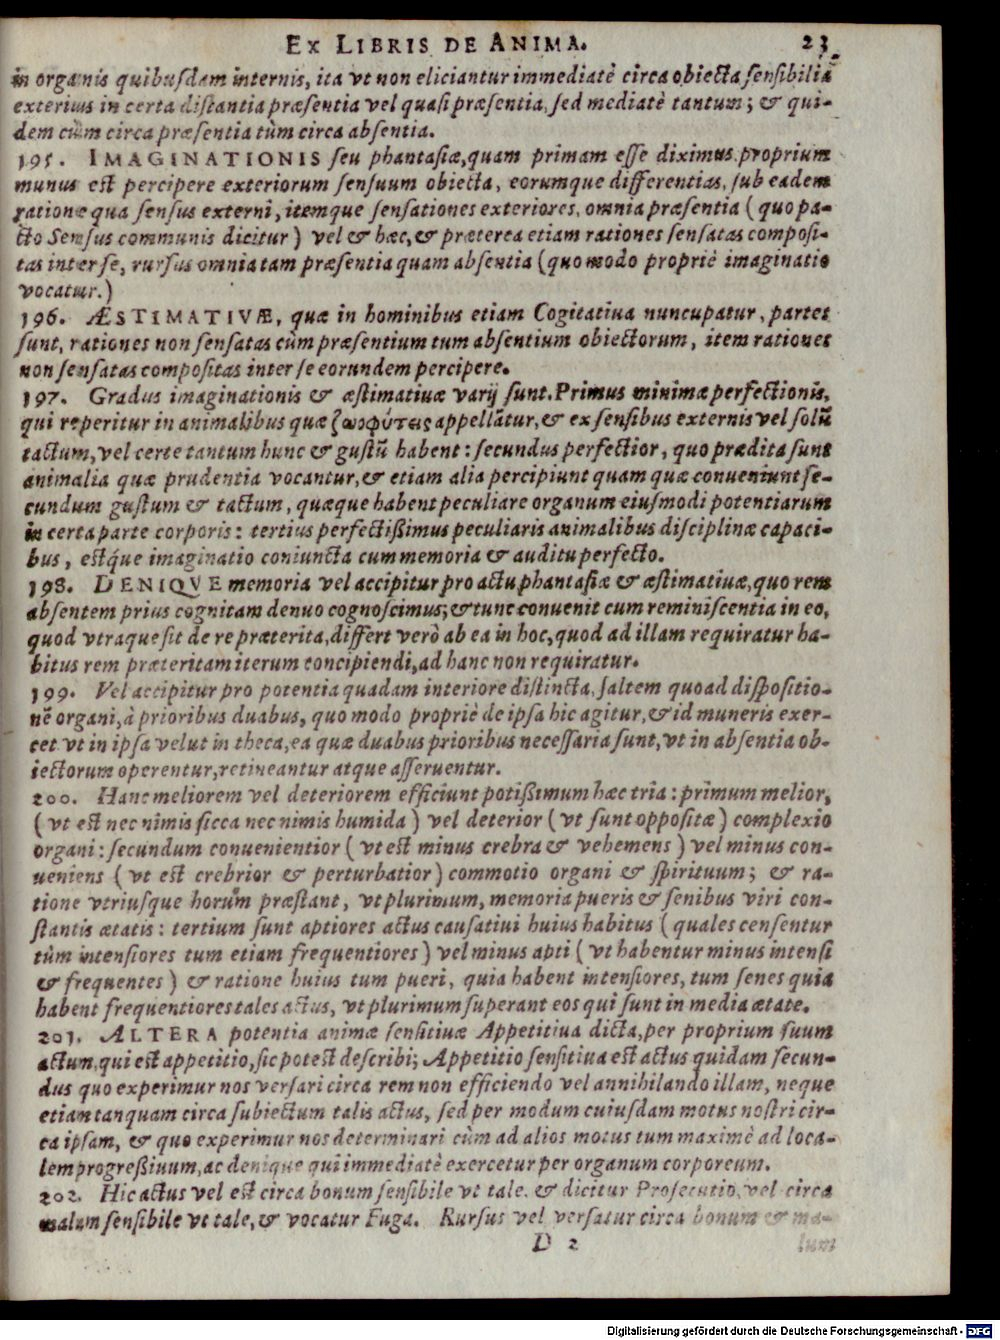 EX LIBRIS DE ANIMA. 23
in organis quibusdam internis, ita vt non eliciantur immediatè circa obiecta sensibilia
exterius in certa distantia præsentia vel quasi præsentia, sed mediatè tantum; & qui-
dem cùm circa præsentia tùm circa absentia.
195. IMAGINATIONIS seu phantasiæ, quam primam esse diximus proprium
munus est percipere exteriorum sensuum obiecta, eorumque differentias, sub eadem
ratione qua sensus externi, itemque sensationes exteriores, omnia præsentia (quo pa-
cto Sensus communis dicitur) vel & hæc, & præterea etiam rationes sensatas composi-
tas inter se, rursus omnia tam præsentia quam absentia (quo modo propriè imaginatio
vocatur.)
196. ÆSTIMATIVÆ, quæ in hominibus etiam Cogitatiua nuncupatur, partes
sunt, rationes non sensatas cùm præsentium tum absentium obiectorum, item rationes
non sensatas compositas inter se eorundem percipere.
197. Gradus imaginationis & æstimatiuæ varij sunt. Primus minimæ perfectionis,
qui reperitur in animalibus quæ ζωοφύτεις appellātur, & ex sensibus externis vel solū
tactum, vel certe tantum hunc & gustū habent: secundus perfectior, quo prædita sunt
animalia quæ prudentia vocantur, & etiam alia percipiunt quam quæ conueniunt se-
cundum gustum & tactum, quæque habent peculiare organum eiusmodi potentiarum
in certa parte corporis: tertius perfectißimus peculiaris animalibus disciplinæ capaci-
bus, estq́ue imaginatio coniuncta cum memoria & auditu perfecto.
198. DENIQVE memoria vel accipitur pro actu phantasiæ & æstimatiuæ, quo rem
absentem prius cognitam denuo cognoscimus; & tunc conuenit cum reminiscentia in eo,
quod vtraque sit de re præterita, differt verò ab ea in hoc, quod ad illam requiratur ha-
bitus rem præteritam iterum concipiendi, ad hanc non requiratur.
199. Vel accipitur pro potentia quadam interiore distincta, saltem quoad dispositio-
nē organi, à prioribus duabus, quo modo propriè de ipsa hic agitur, & id muneris exer-
cet vt in ipsa velut in theca, ea quæ duabus prioribus necessaria sunt, vt in absentia ob-
iectorum operentur, retineantur atque asseruentur.
200. Hanc meliorem vel deteriorem efficiunt potißimum hæc tria: primum melior,
(vt est nec nimis sicca nec nimis humida) vel deterior (vt sunt oppositæ) complexio
organi: secundum conuenientior (vt est minus crebra & vehemens) vel minus con-
ueniens (vt est crebrior & perturbatior) commotio organi & spirituum; & ra-
tione vtriusque horum præstant, vt plurimum, memoria pueris & senibus viri con-
stantis ætatis: tertium sunt aptiores actus causatiui huius habitus (quales censentur
tùm intensiores tum etiam frequentiores) vel minus apti (vt habentur minus intensi
& frequentes) & ratione huius tum pueri, quia habent intensiores, tum senes quia
habent frequentiores tales actus, vt plurimum superant eos qui sunt in media ætate.
201. ALTERA potentia animæ sensitiuæ Appetitiua dicta, per proprium suum
actum, qui est appetitio, sic potest describi; Appetitio sensitiua est actus quidam secun-
dus quo experimur nos versari circa rem non efficiendo vel annihilando illam, neque
etiam tanquam circa subiectum talis actus, sed per modum cuiusdam motus nostri cir-
ca ipsam, & quo experimur nos determinari cùm ad alios motus tum maximè ad loca-
lem progreßiuum, ac denique qui immediatè exercetur per organum corporeum.
202. Hic actus vel est circa bonum sensibile vt tale, & dicitur Prosecutio, vel circa
malum sensibile vt tale, & vocatur Fuga. Rursus vel versatur circa bonum & ma-
D 2 lum
Digitalisierung gefördert durch die Deutsche Forschungsgemeinschaft - DFG